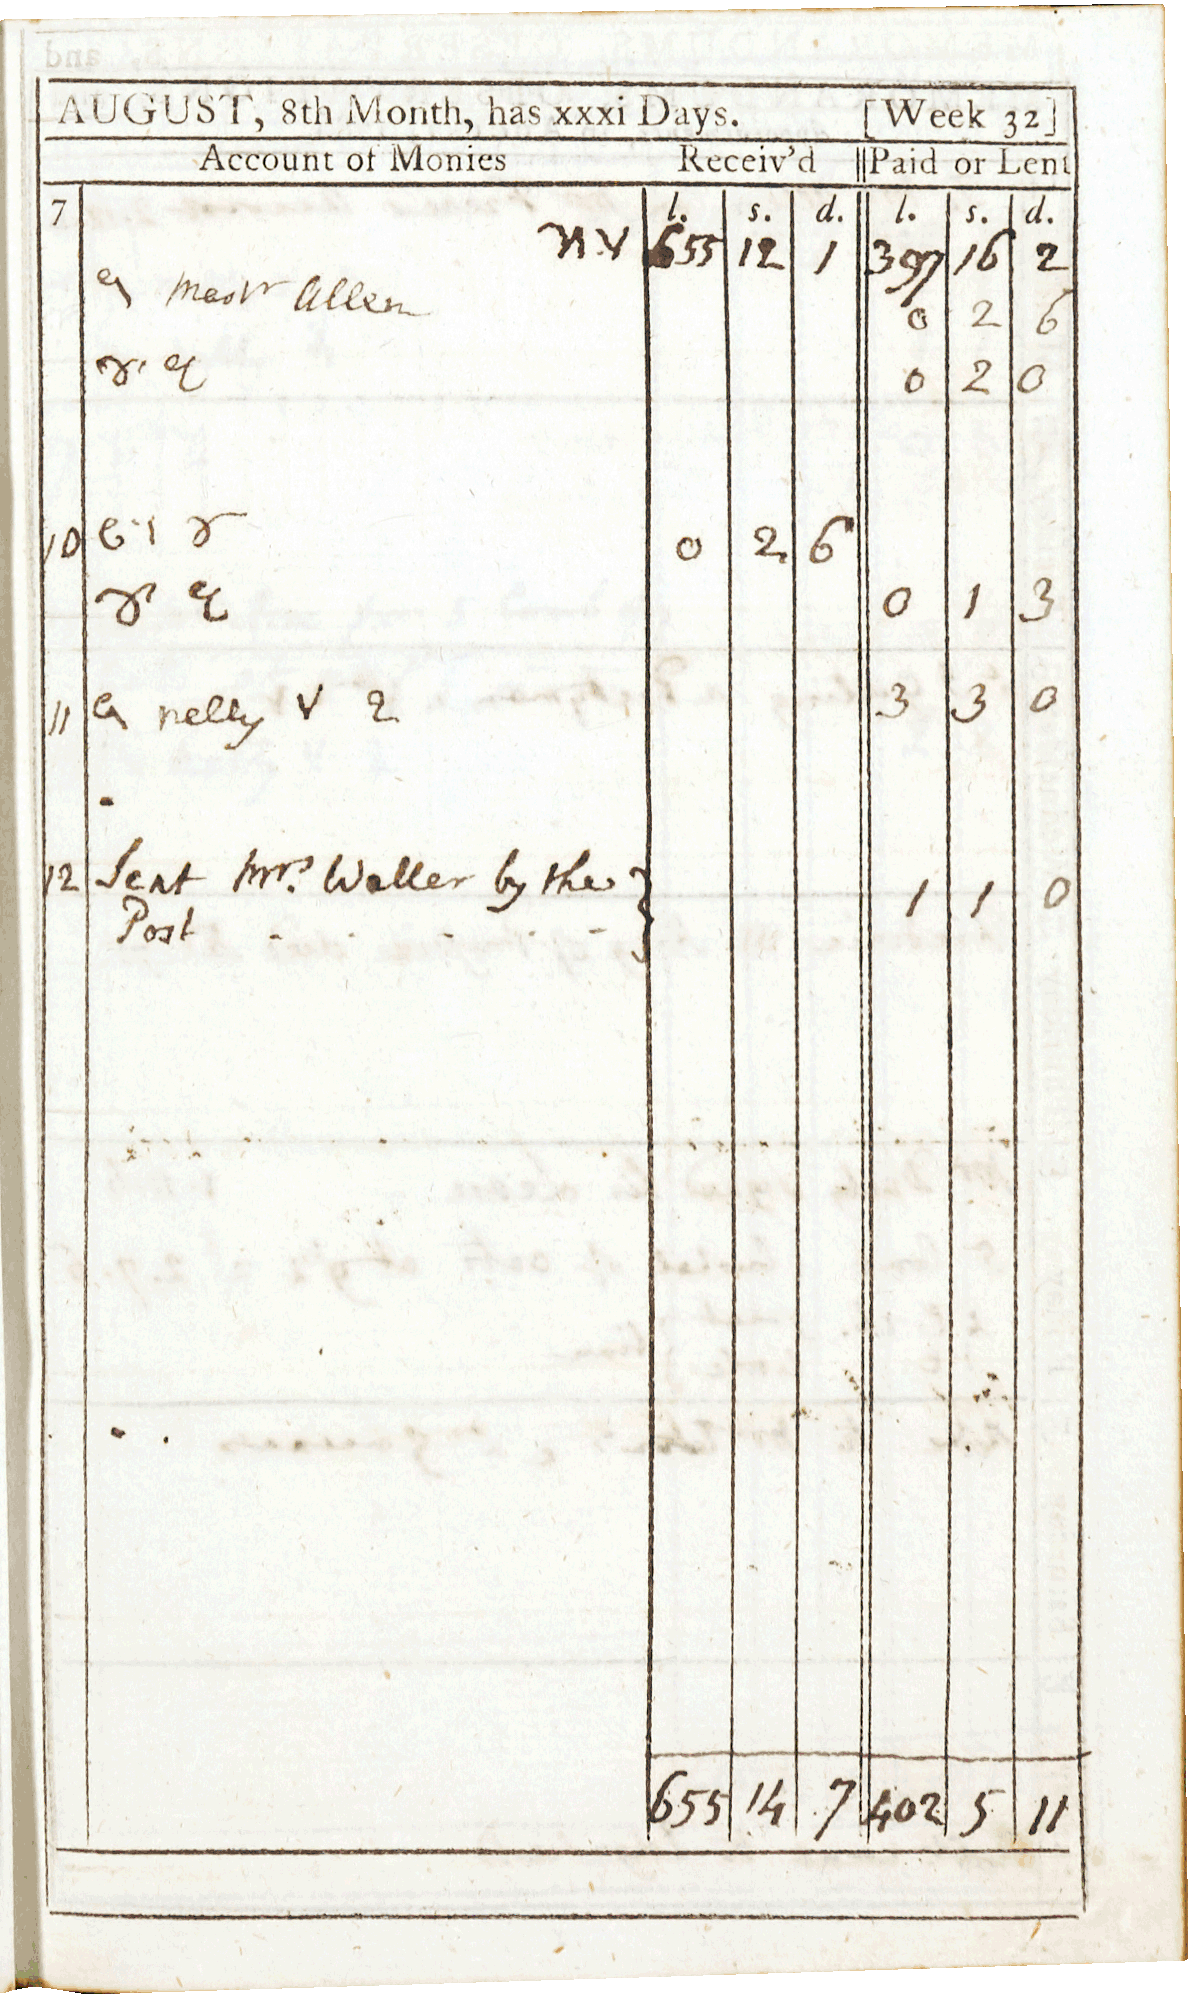 AUGUST, 8th Month, has xxxi Days. [Week 32]
Account of Monies Receiv'd Paid or Lent
7 l. s. d. l. s. d.
655 12 1 397 16 2
Mastr Allen 0 2 6
0 2 0
10 0 2 6
0 1 3
11 nelly 3 3 0
12 Sent Mrs. Waller by the } 1 1 0
Post - - - -
655 14 7 402 5 11